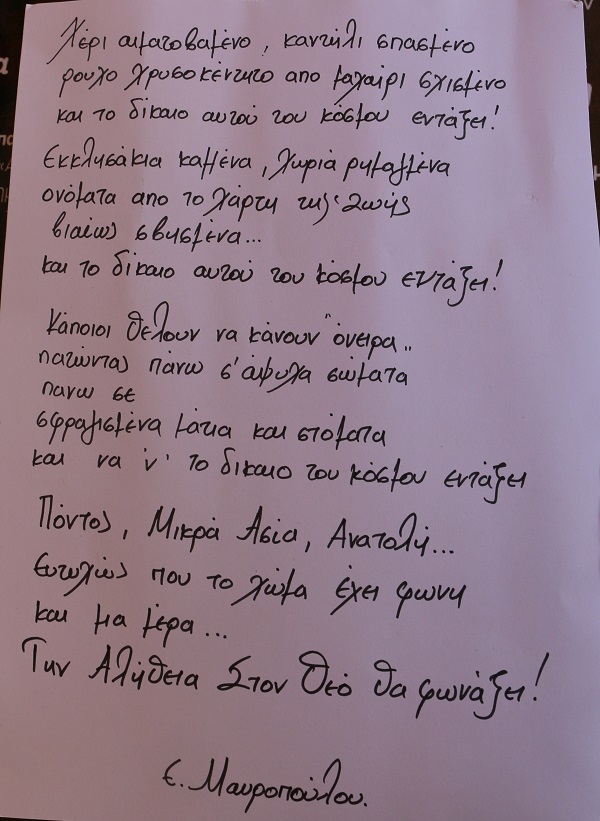 Χέρι αιματοβαμένο, καντήλι σπασμένο
ρουχο χρυσοκέντητο απο μαχαίρι σχισμένο
και το δίκαιο αυτού του κόσμου εντάξει!
Εκκλησάκια καμένα, χωριά ρημαγμένα
ονόματα απο το χάρτη της ζωής
βιαίως σβησμένα...
και το δίκαιο αυτού του κόσμου εντάξει!
Κάποιοι θέλουν να κάνουν "όνειρα"
πατώντας πάνω σ' άψυχα σώματα
πανω σε
σφραγισμένα μάτια και στόματα
και να 'ν' το δικαιο του κόσμου εντάξει
Πόντος, Μικρά Ασία, Ανατολή...
Ευτυχώς που το χώμα έχει φωνη
και μια μέρα...
Την Αλήθεια Στον Θεό θα φωνάξει!
Ε. Μαυροπούλου.